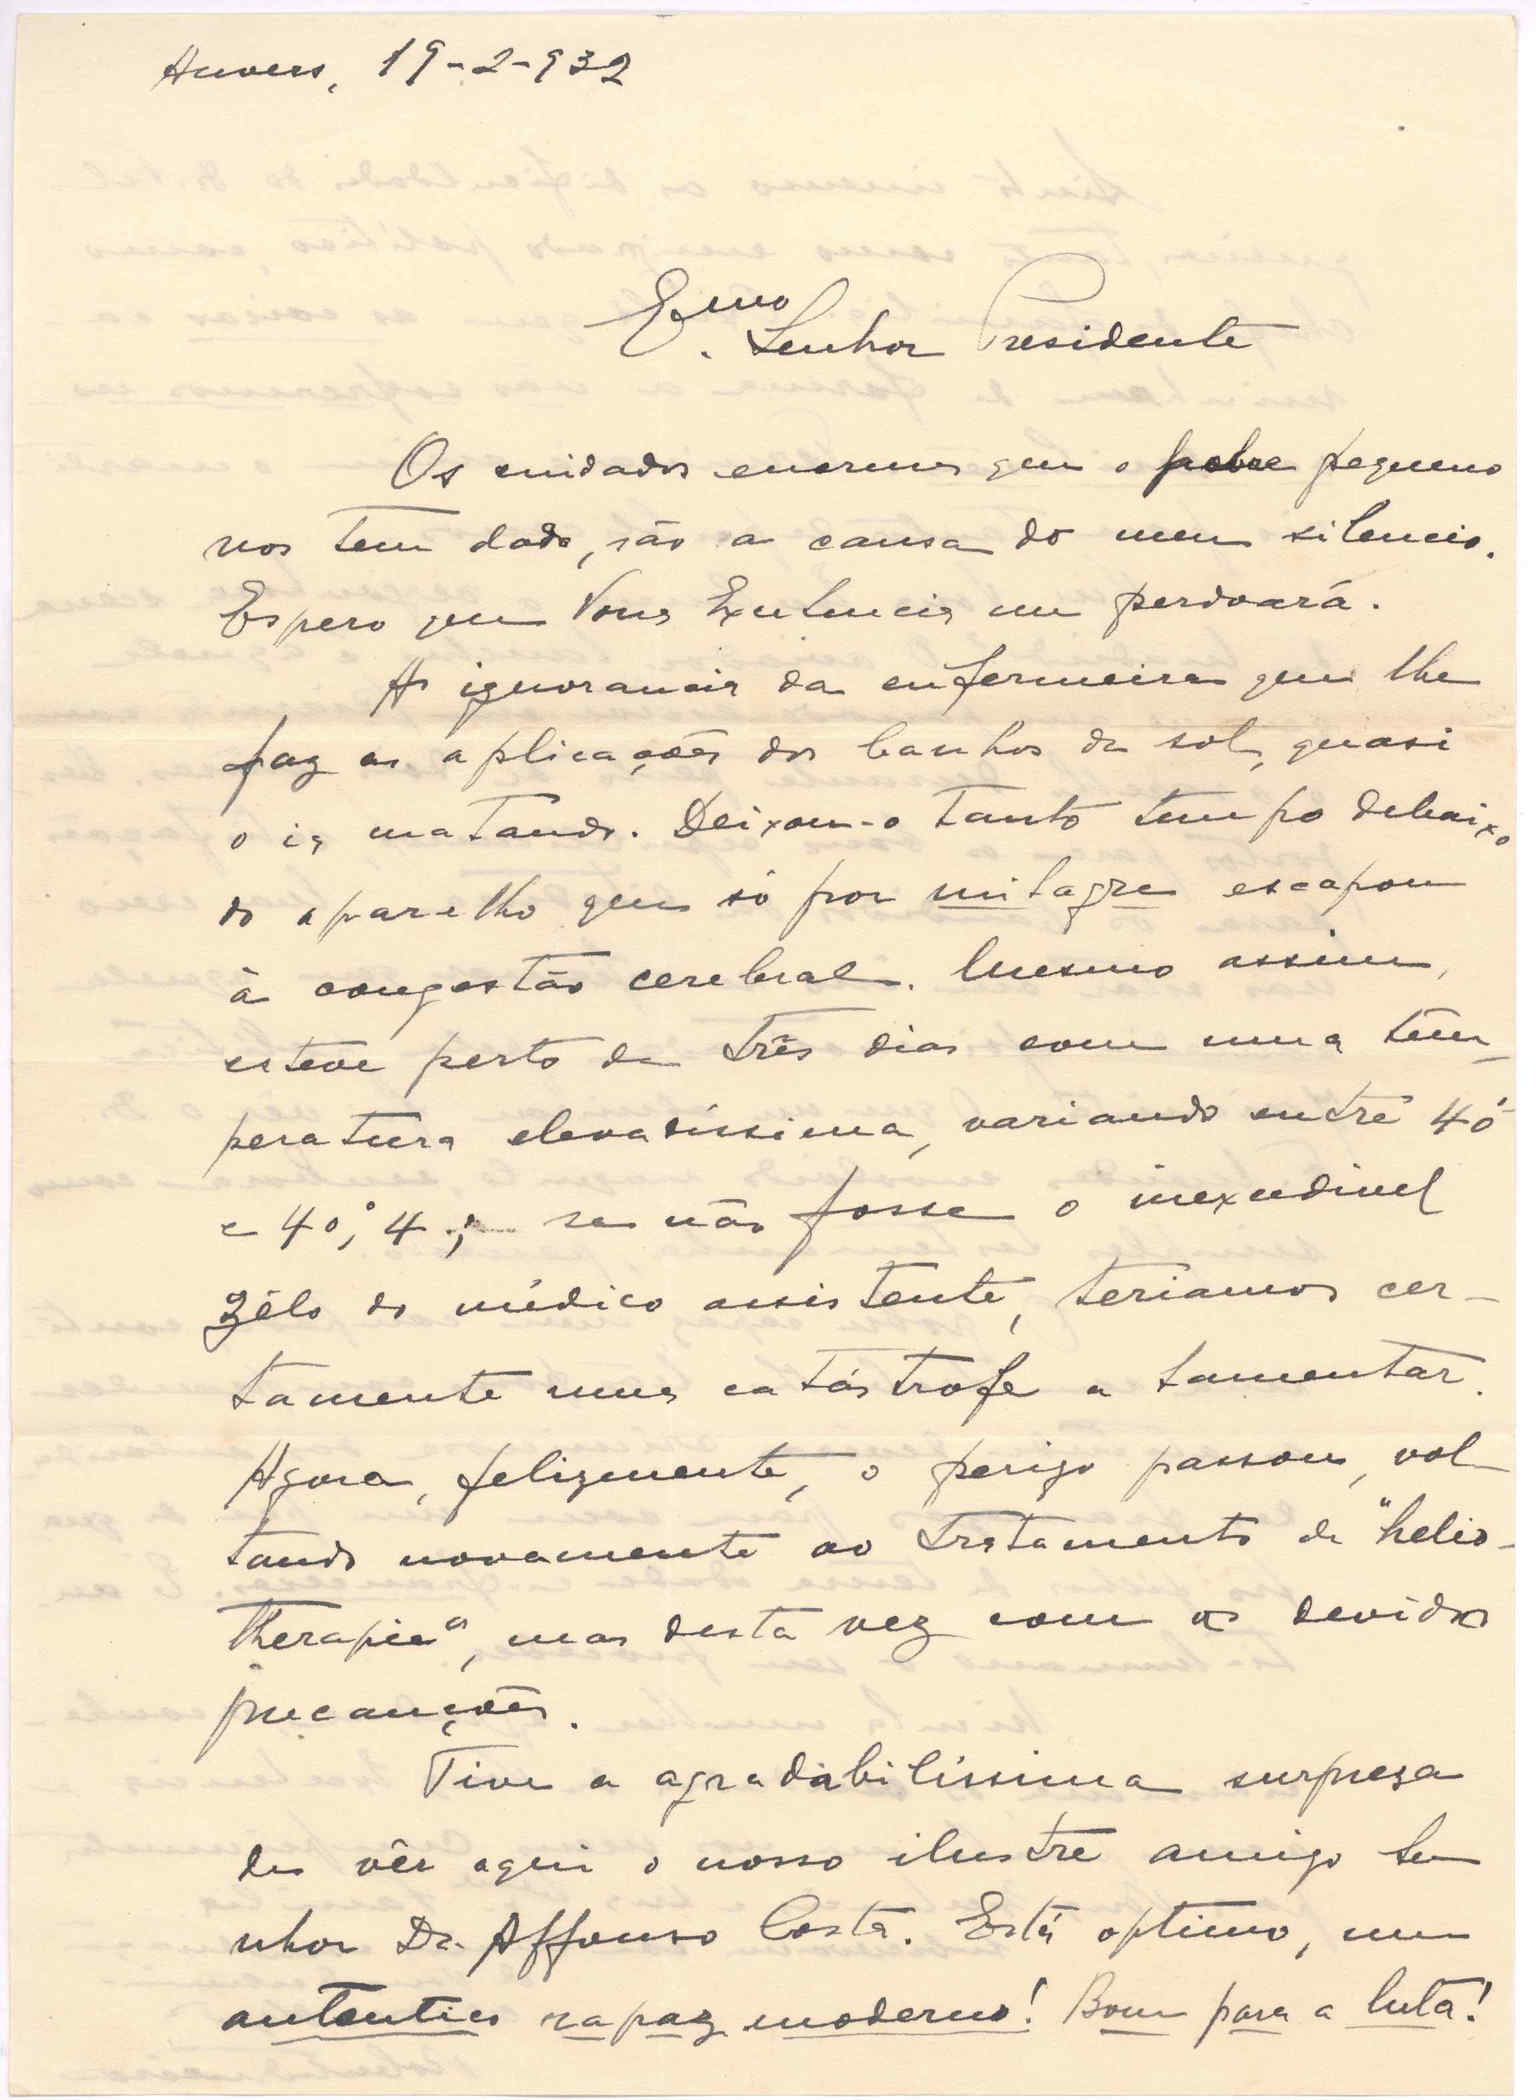 Anvers, 19-2-932
Exmo. Senhor Presidente
Os cuidados enormes que o pobre pequeno
nos tem dado, são a causa do meu silencio.
Espero que Vossa Excelencia me perdoará.
A ignorancia da enfermeira que lhe
faz as aplicações dos banhos de sol, quasi
o ia matando. Deixou-o tanto tempo debaixo
do aparelho que só por milagre escapou
à congestão cerebral. Mesmo assim,
esteve perto de três dias com uma tem-
peratura elevadíssima, variando entre 40°
e 40°,4; se não fosse o inexcedivel
zêlo do médico assistente, teriamos cer-
tamente uma catástrofe a lamentar.
Agora, felizmente, o perigo passou, vol-
tando novamente ao tratamento de "helio-
therapie", mas desta vez com as devidas
precauções.
Tive a agradabilíssima surpreza
de vêr aqui o nosso ilustre amigo Se
nhor Dr. Affonso Costa. Está optimo, um
autentico rapaz moderno! Bom para a luta!